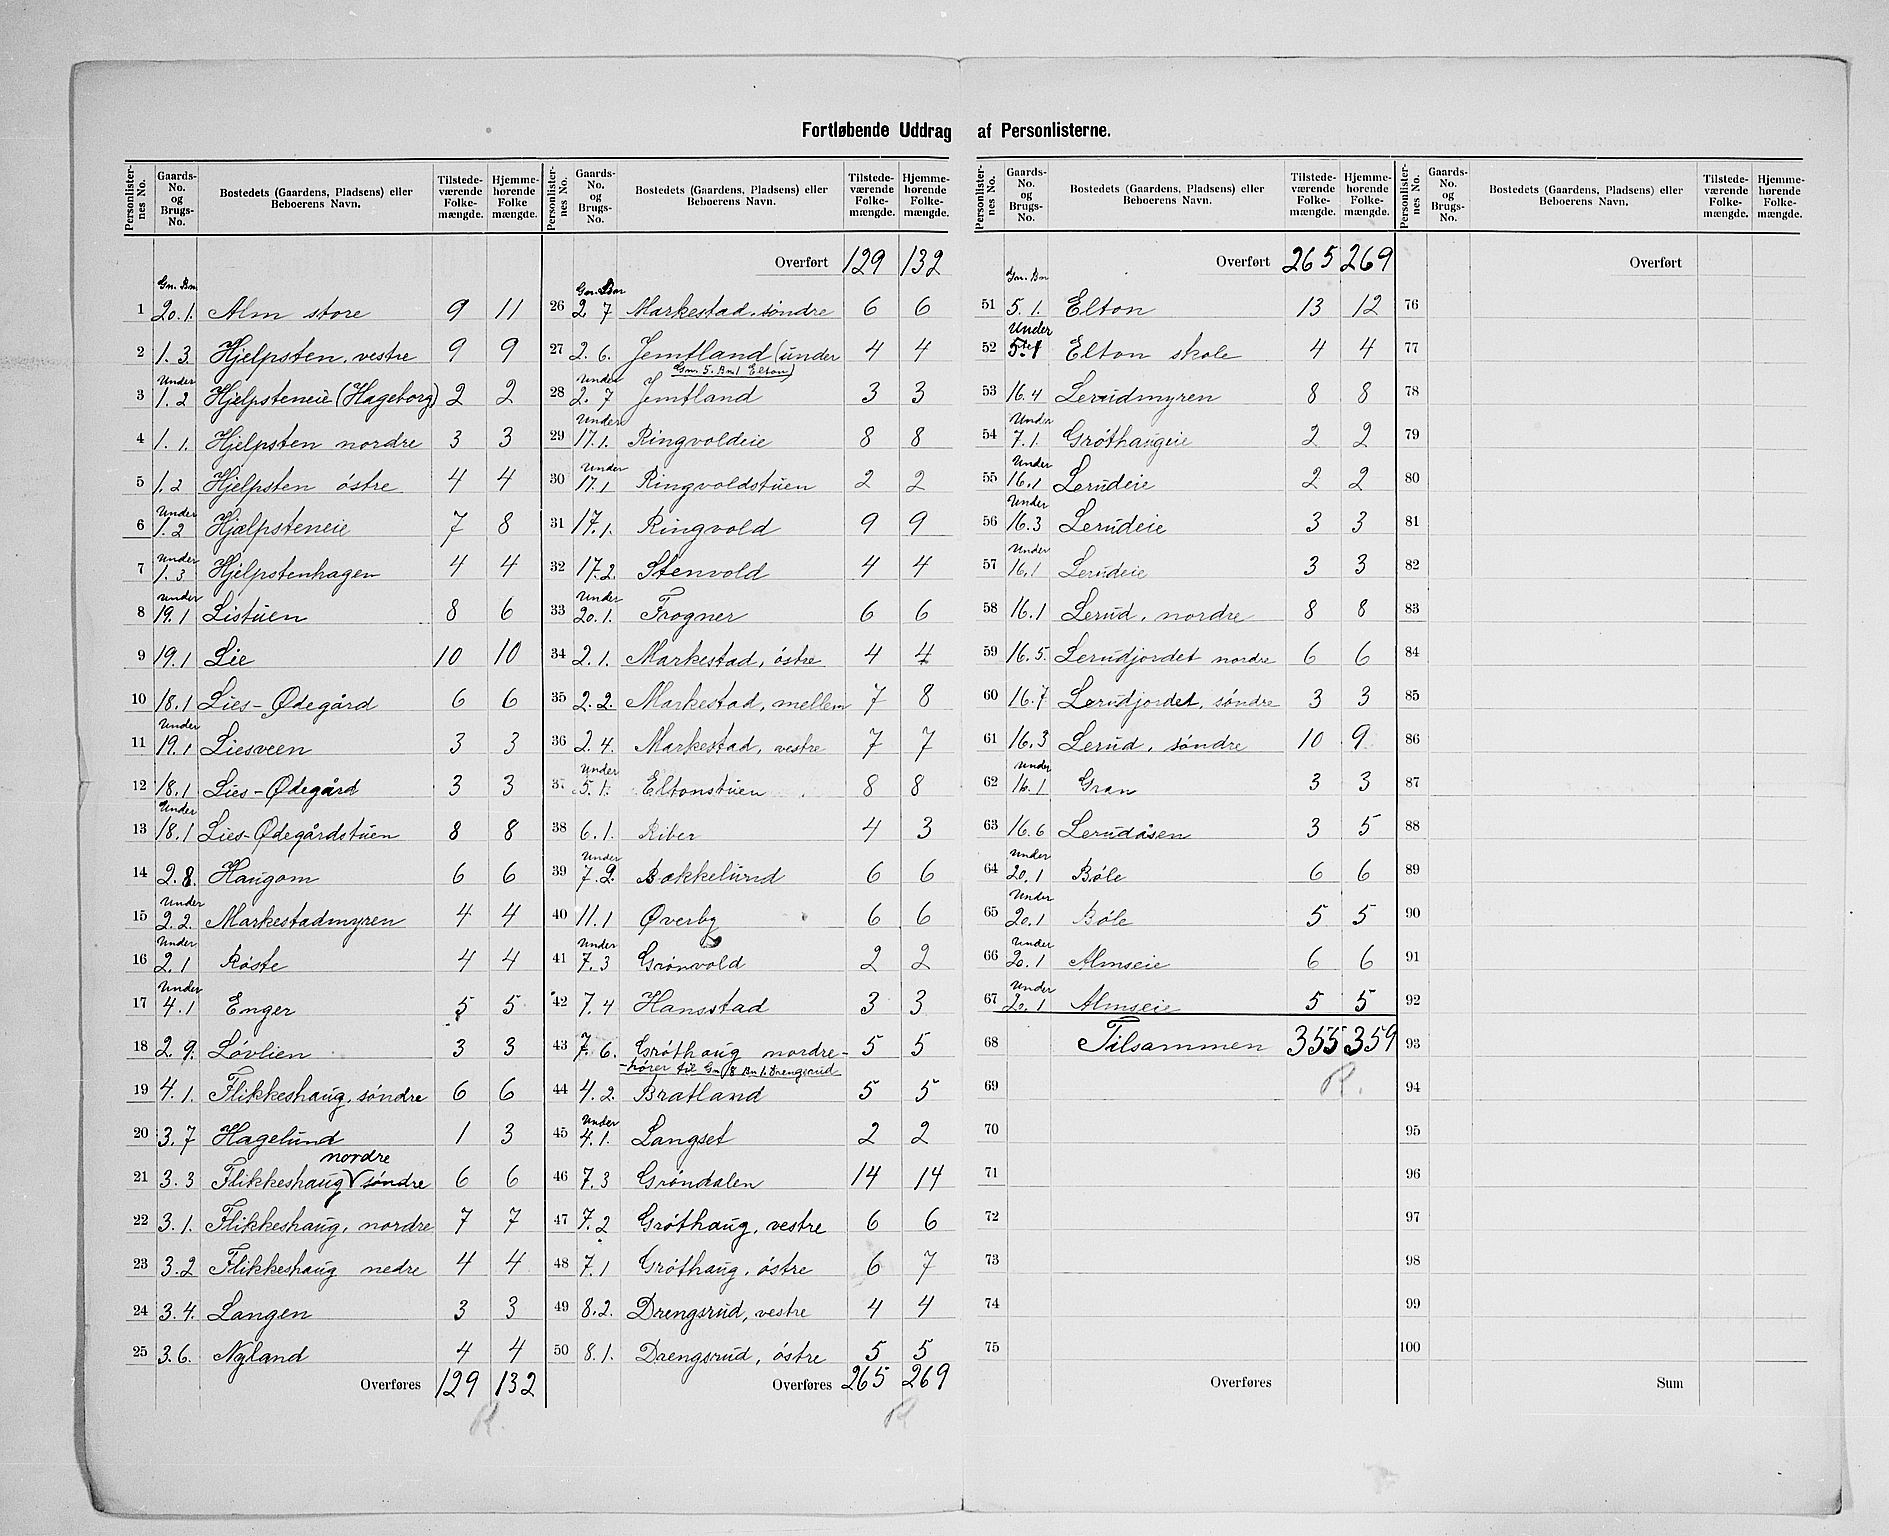 Fortløbende Uddrag af Personlisterne.
Personlister-nes No. Gaards-No. og Brugs-No. Bostedets (Gaardens, Pladsens) eller Beboerens Navn. Tilstede-værende Folke-mængde. Hjemme-hørende Folke-mængde.
Gn. Bn
1 20.1. Alm store 9 11
2 1.3. Hjelpsten, vestre 9 9
3 Under 1.2 Hjelpsteneie (Hageborg) 2 2
4 1.1. Hjelpsten nordre 3 3
5 1.2 Hjelpsten østre 4 4
6 Under 1.2 Hjælpsteneie 7 8
7 Under 1.3 Hjelpstenhagen 4 4
8 Under 19.1 Listuen 8 6
9 19.1 Lie 10 10
10 18.1 Lies-Ødegård 6 6
11 Under 19.1 Liesveen 3 3
12 18.1 Lies-Ødegård 3 3
13 Under 18.1 Lies-Ødegårdstuen 8 8
14 2.8. Haugom 6 6
15 Under 2.2. Markestadmyren 4 4
16 Under 2.1 Røste 4 4
17 Under 4.1 Enger 5 5
18 2.9. Løvlien 3 3
19 4.1. Flikkeshaug, søndre 6 6
20 3.7 Hagelund 1 3
nordre
21 3.3 Flikkeshaug søndre 6 6
22 3.1. Flikkeshaug, nordre 7 7
23 3.2 Flikkeshaug nedre 4 4
24 3.4. Langen 3 3
25 3.6. Nyland 4 4
Overføres 129 132
R.
Personlister-nes No. Gaards-No. og Brugs-No. Bostedets (Gaardens, Pladsens) eller Beboerens Navn. Tilstede-værende Folke-mængde. Hjemme-hørende Folke-mængde.
Overført 129 132
Gn. Bn
26 2 7 Markestad, søndre 6 6
27 2.6. Jemtland (under 4 4
Gn. 5. Bn 1 Elton)
28 Under 2.7 Jemtland 3 3
29 Under 17.1. Ringvoldeie 8 8
30 Under 17.1 Ringvoldstuen 2 2
31 17.1. Ringvold 9 9
32 17.2. Stenvold 4 4
33 Under 20.1. Frogner 6 6
34 2.1. Markestad, østre 4 4
35 2.2. Markestad, mellem 7 8
36 2.4. Markestad, vestre 7 7
37 Under 5.1. Eltonstuen 8 8
38 6.1. Riber 4 3
39 Under 7.2. Bakkelund 6 6
40 11.1 Øverby 6 6
41 Under 7.3 Grønvold 2 2
42 7.4 Hansstad 3 3
43 7.6. Grøthaug nordre- 5 5
-hører til Gn 8 Bn 1. Drengsrud
44 4.2. Bratland 5 5
45 Under 4.1. Langset 2 2
46 7.3 Grøndalen 14 14
47 7.2 Grøthaug, vestre 6 6
48 7.1 Grøthaug, østre 6 7
49 8.2. Drengsrud, vestre 4 4
50 8.1. Drengsrud, østre 5 5
Overføres 265 269
R
Personlister-nes No. Gaards-No. og Brugs-No. Bostedets (Gaardens, Pladsens) eller Beboerens Navn. Tilstede-værende Folke-mængde. Hjemme-hørende Folke-mængde.
Overført 265 269
Gn. Bn
51 5.1. Elton 13 12
52 Under 5.1 Elton skole 4 4
53 16.4 Lerudmyren 8 8
54 Under 7.1. Grøthaugeie 2 2
55 Under 16.1 Lerudeie 2 2
56 Under 16.3 Lerudeie 3 3
57 Under 16.1 Lerudeie 3 3
58 16.1 Lerud, nordre 8 8
59 16.5. Lerudjordet nordre 6 6
60 16.7 Lerudjordet, søndre 3 3
61 16.3 Lerud, søndre 10 9
62 Under 16.1 Gran 3 3
63 16.6 Lerudåsen 3 5
64 Under 20.1 Bøle 6 6
65 Under 20.1 Bøle 5 5
66 Under 20.1 Almseie 6 6
67 Under 20.1 Almseie 5 5
68 Tilsammen 355 359
69 R.
70
71
72
73
74
75
Overføres
Personlister-nes No. Gaards-No. og Brugs-No. Bostedets (Gaardens, Pladsens) eller Beboerens Navn. Tilstede-værende Folke-mængde. Hjemme-hørende Folke-mængde.
Overført
76
77
78
79
80
81
82
83
84
85
86
87
88
89
90
91
92
93
94
95
96
97
98
99
100
Sum